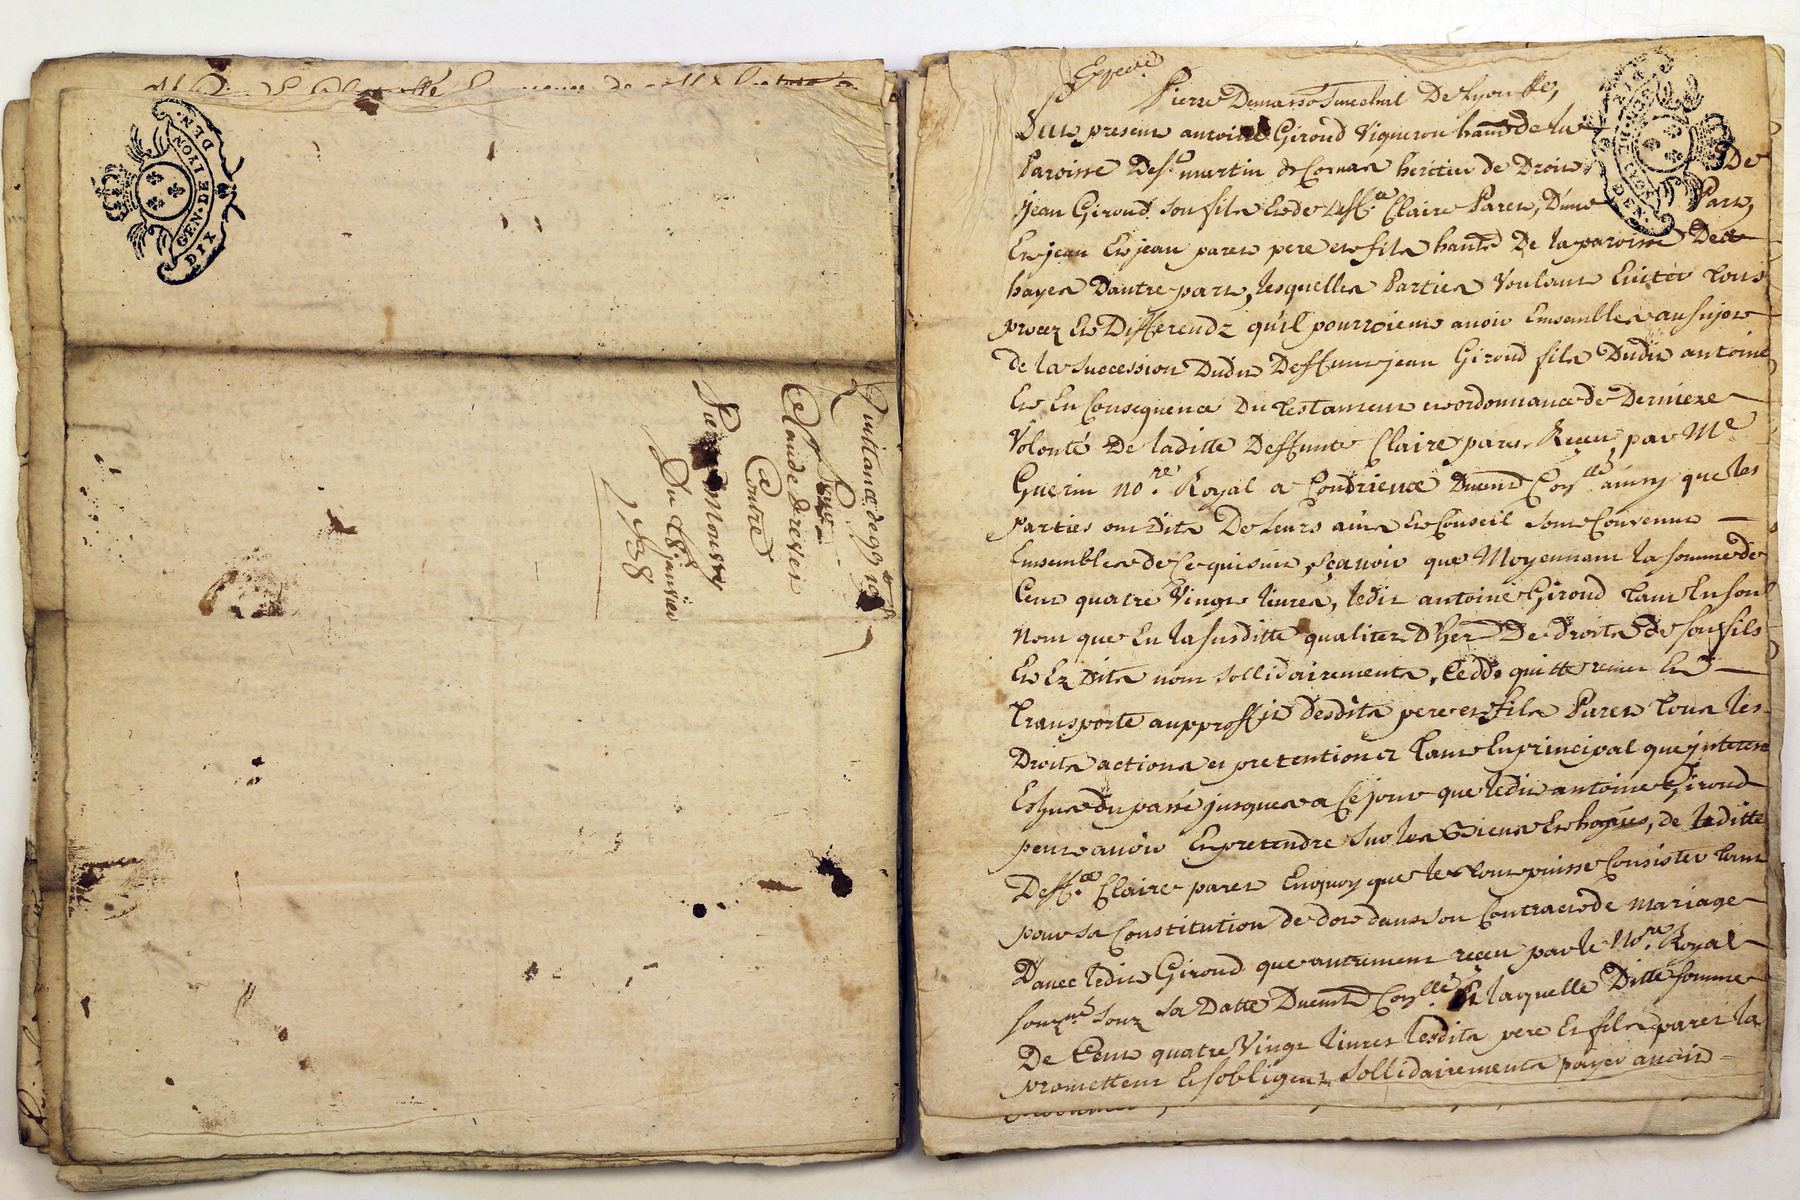 GEN. DE LYON
DIX DEN.
Quittance de 97 ₶ 19 s
Pour
Claude dervieu
Contre
Pierre Mousy
Du 18 janvier
1738
Expedié
Pierre Demasso Seneschal De Lyon
Fut present antoine Giroud Vigneron habt de la
Paroisse De St martin de Cornas heritier de Droit De
jean Giroud son fils et de deffte Claire Paret, D'une Part,
Et jean et jean paret pere et fils habts De la paroisse Des
hayes D'autre part, lesquelles Parties Voulant Eviter tous
procez et Differendz qu'il pourroient avoir Ensembles au sujet
de la succession Dudit Deffunt jean Giroud fils Dudit antoine
Et En Consequence Du testament et ordonnance de Derniere
Volonté De laditte Deffunte Claire paret Receu par Me
Guerin nore Royal a Condrieux Duemt Conllé ainsy que les
Parties ont dits De leurs avis et Conseil sont Convenu
Ensembles de Ce qui suit, sçavoir que Moyennant la somme de
Cent quatre Vingt livres, ledit antoine Giroud tant En son
Nom que En la susditte qualitez D'her De droits de son fils
Et Ez dits nom sollidairements, Cedde quitte remet et
transporte au proffit desdits pere et fils Paret tous les
Droits actions et pretentions tant En principal que jnterest
Eshus du passé jusques a Ce jour que ledit antoine Giroud
peut avoir Et pretendre sur les Biens et hoyries, de laditte
Deffte Claire paret En quoy que le tout puisse Consister tant
pour sa Constitution de dot dans son Contract de mariage
D'avec ledit Giroud que autrement receu par le Nore Royal
souzne souz sa Datte Duemt Conllé Et laquelle Ditte somme
De Cent quatre Vingt livres lesdits pere Et fils paret la
promettent Et s'obligent sollidairements payer avoir